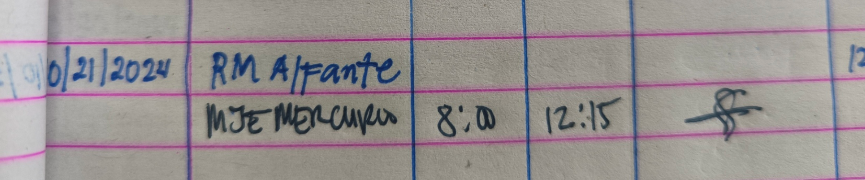 10/21/2024 RM Alfante
MJE MERCURIO 8:00 12:15
12